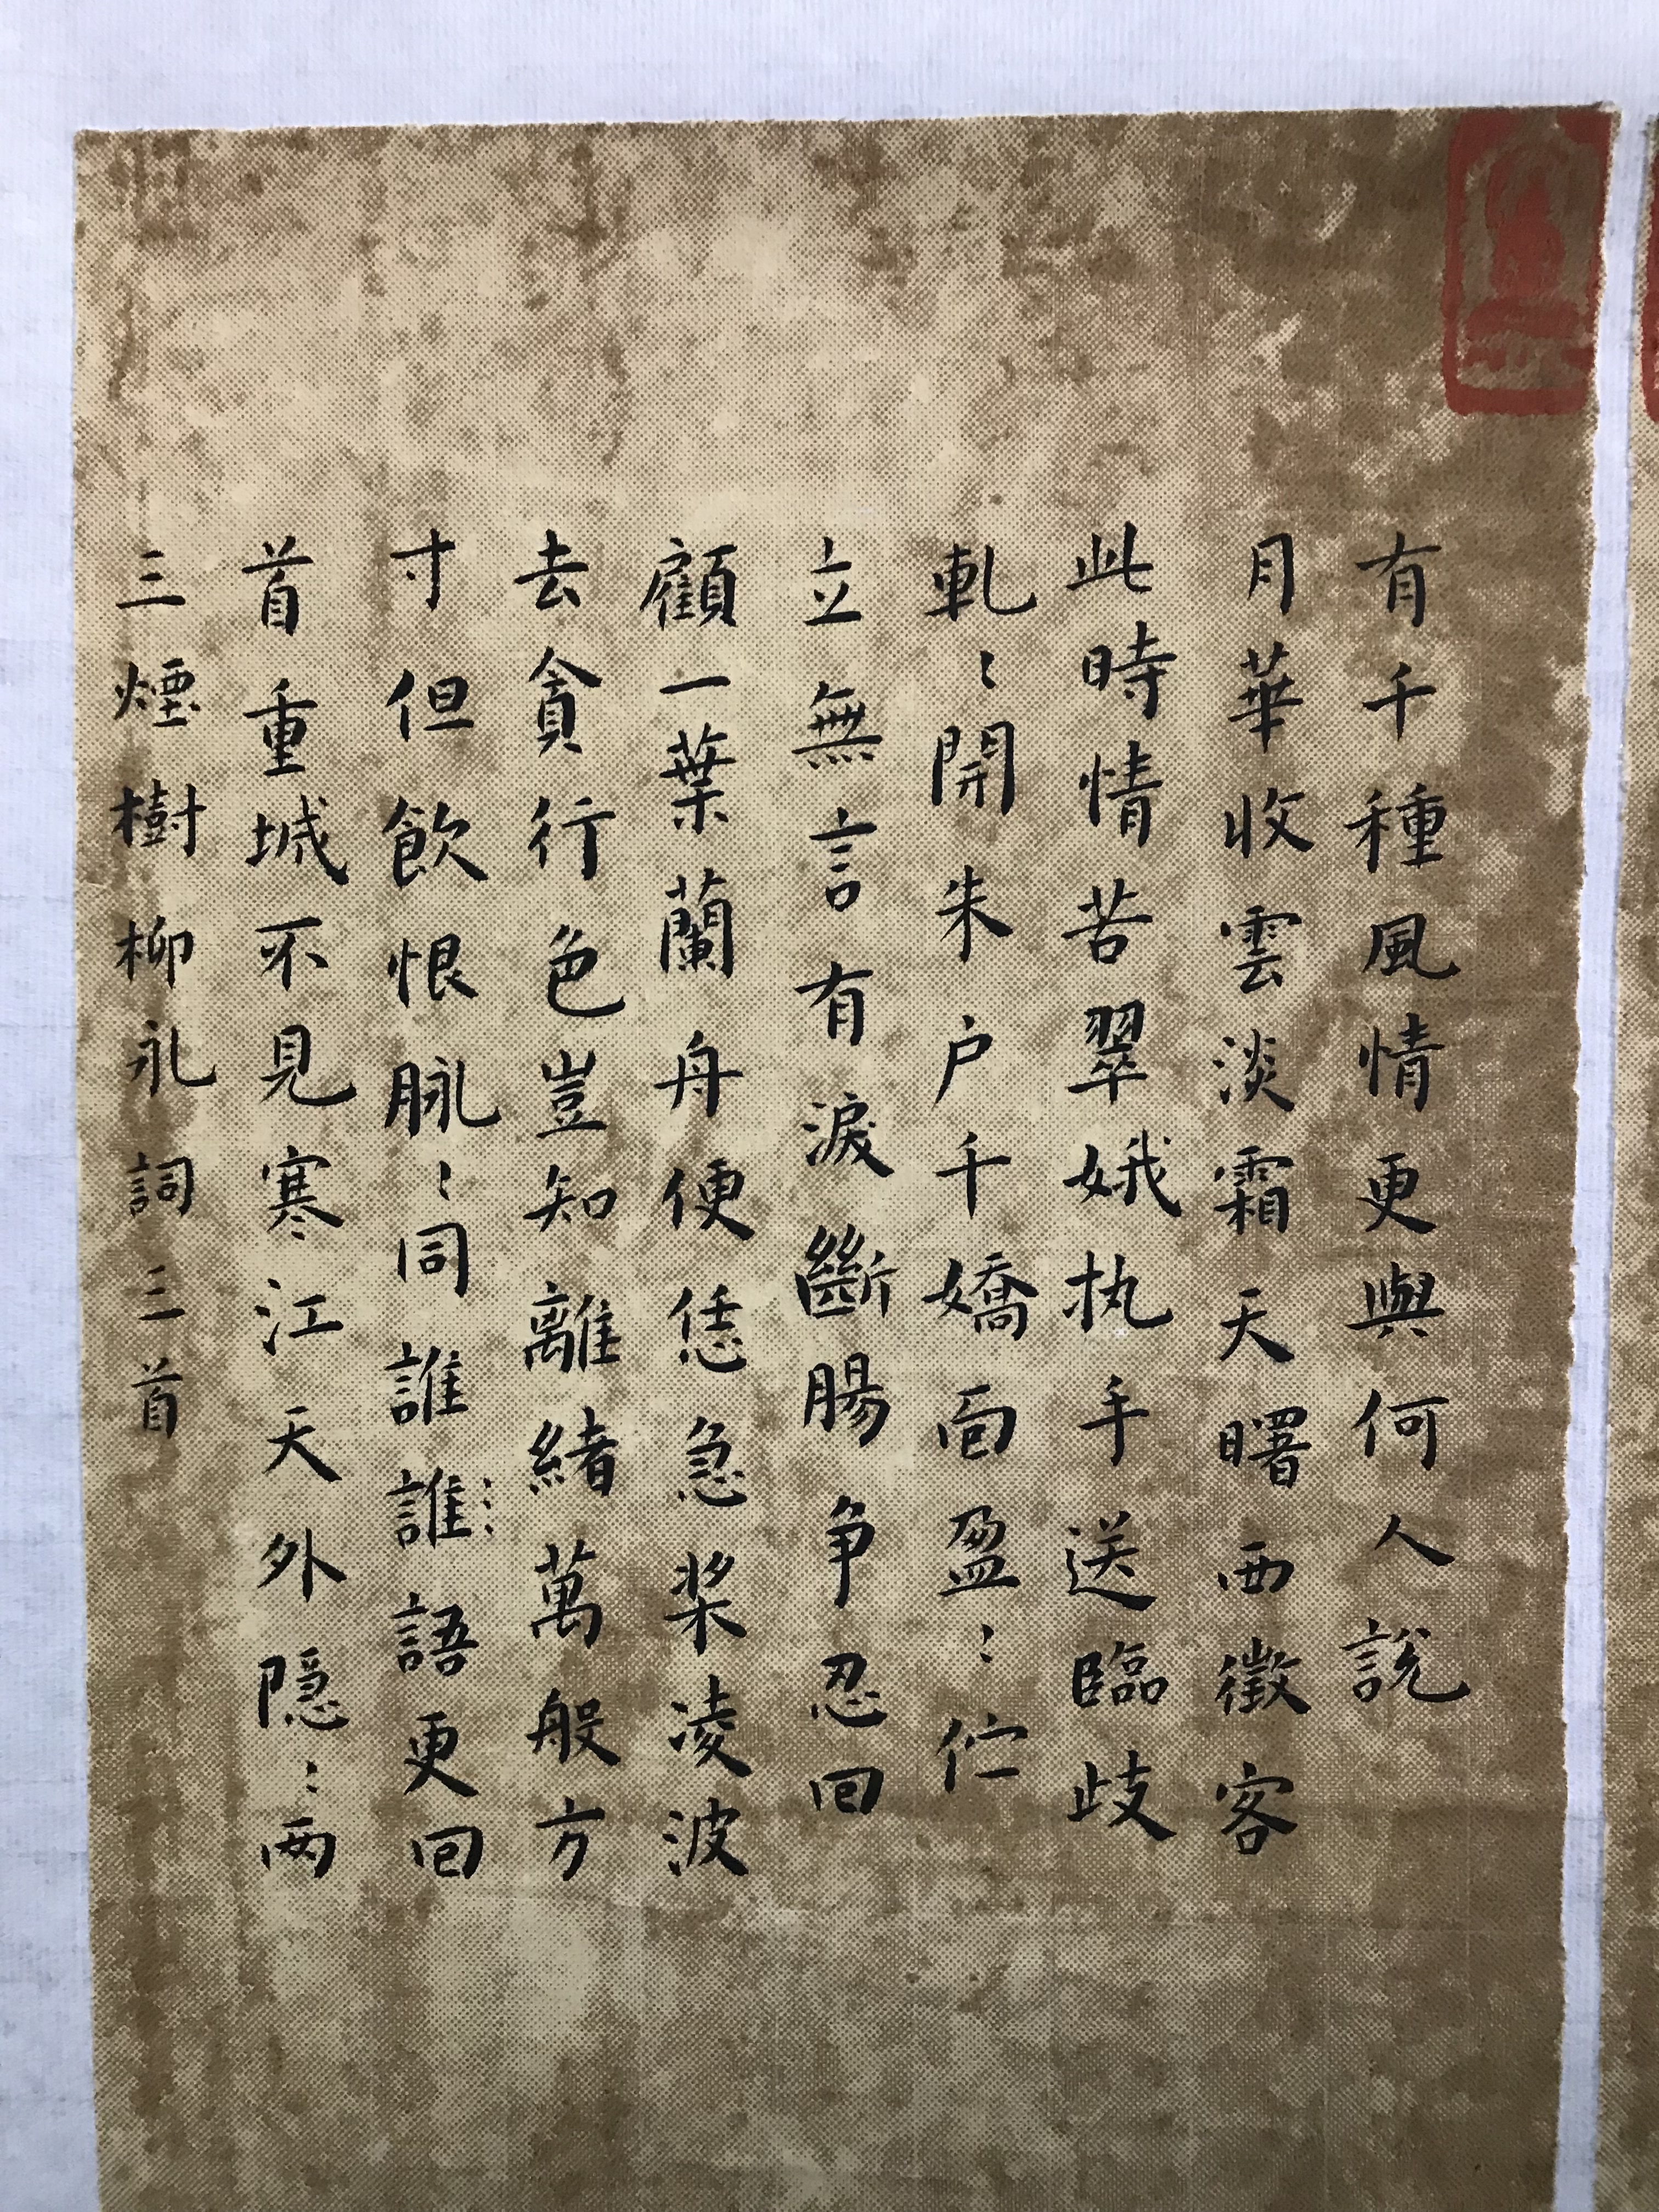 有千種風情更與何人說
月華收雲淡霜天曙西徵客
此時情苦翠娥执手送臨歧
軋〻開朱户千嬌面盈盈〻佇
立無言有淚斷腸争忍回
顧一葉蘭舟便恁急桨凌波
去貪行色豈知離緒萬般方
寸但飲恨脉〻同誰誰語更回
首重城不見寒江天外隱〻两
三煙樹柳永詞三首